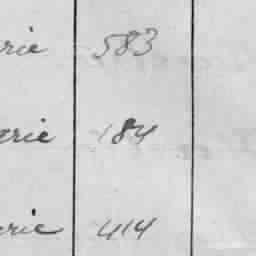 rie 583
erie 184
rie 414